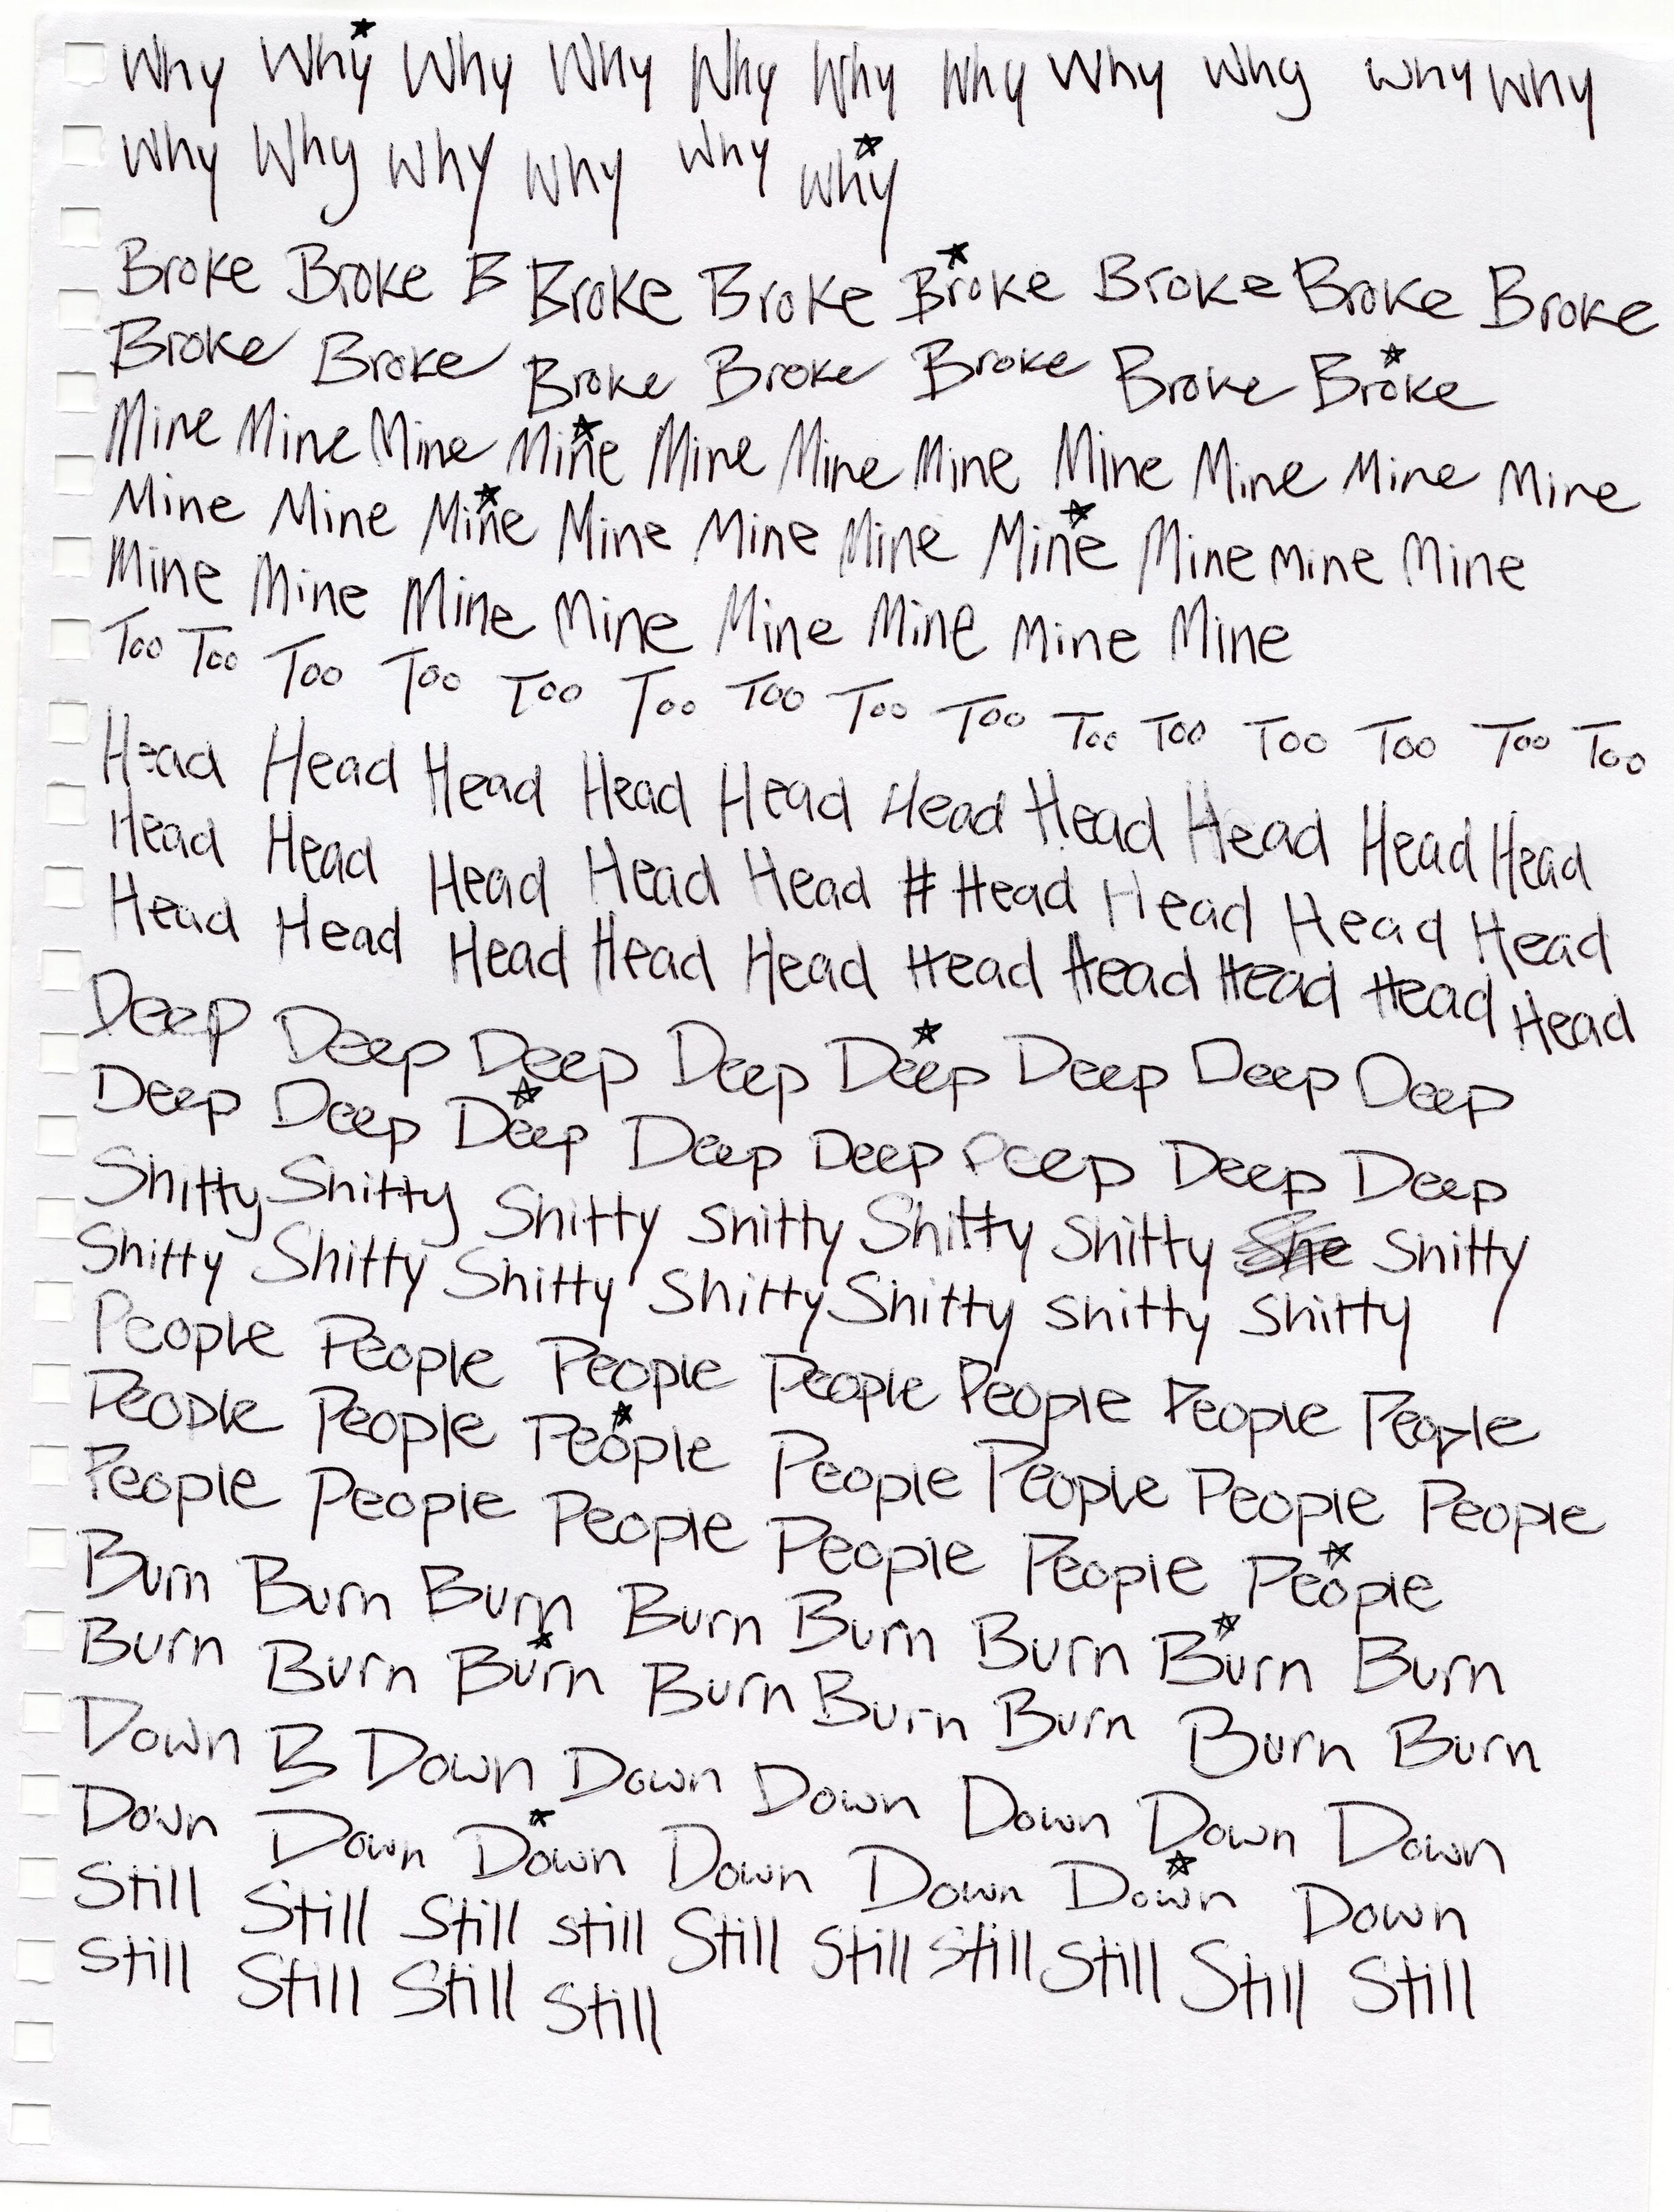 Why Why Why Why Why Why Why Why Why Why Why
Why Why Why Why Why Why
Broke Broke B Broke Broke Broke Broke Broke Broke
Broke Broke Broke Broke Broke Broke Broke
Mine Mine Mine Mine Mine Mine Mine Mine Mine Mine Mine
Mine Mine Mine Mine Mine Mine Mine Mine Mine Mine
Mine Mine Mine Mine Mine Mine Mine Mine
Too Too Too Too Too Too Too Too Too Too Too Too Too Too Too
Head Head Head Head Head Head Head Head Head Head
Head Head Head Head Head # Head Head Head Head
Head Head Head Head Head Head Head Head Head Head
Deep Deep Deep Deep Deep Deep Deep Deep
Deep Deep Deep Deep Deep Deep Deep Deep
Shitty Shitty Shitty Shitty Shitty Shitty She Shitty
Shitty Shitty Shitty Shitty Shitty Shitty Shitty
People People People People People People People
People People People People People People People
People People People People People People
Burn Burn Burn Burn Burn Burn Burn Burn
Burn Burn Burn Burn Burn Burn Burn Burn
Down B Down Down Down Down Down Down
Down Down Down Down Down Down Down
Still Still Still Still Still Still Still Still Still Still
Still Still Still Still